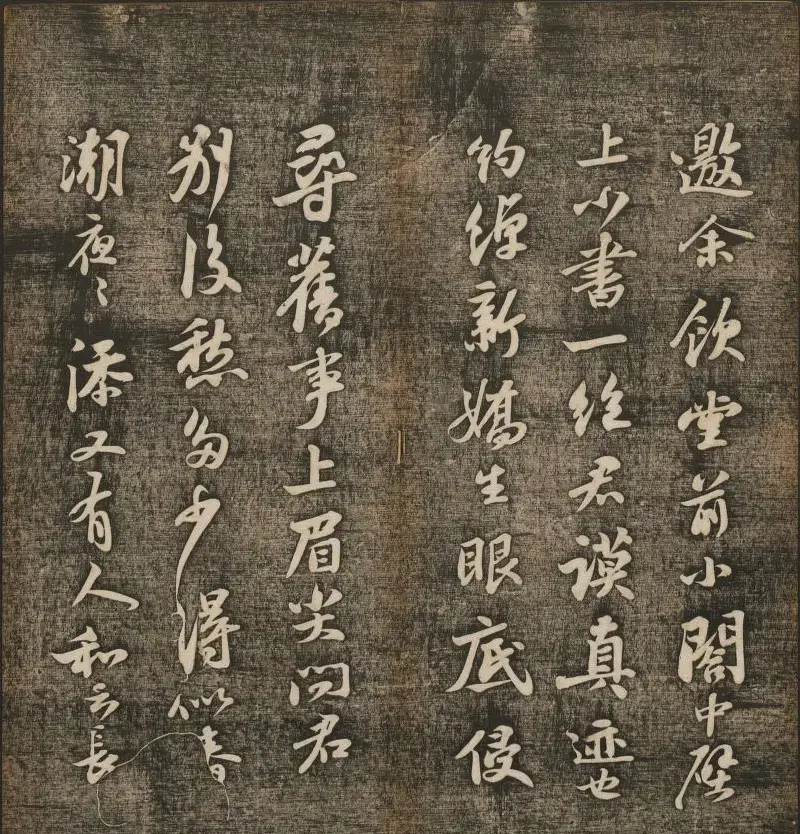 邀余飲堂前小閣中壁
上小書一絕君謨真迹也
約綽新嬌生眼底侵
尋舊事上眉尖問君
別後愁多少得似春
潮夜〻添又有人和云長